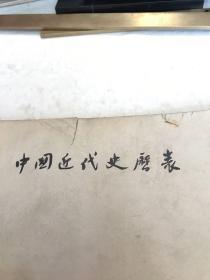 中國近代史曆表